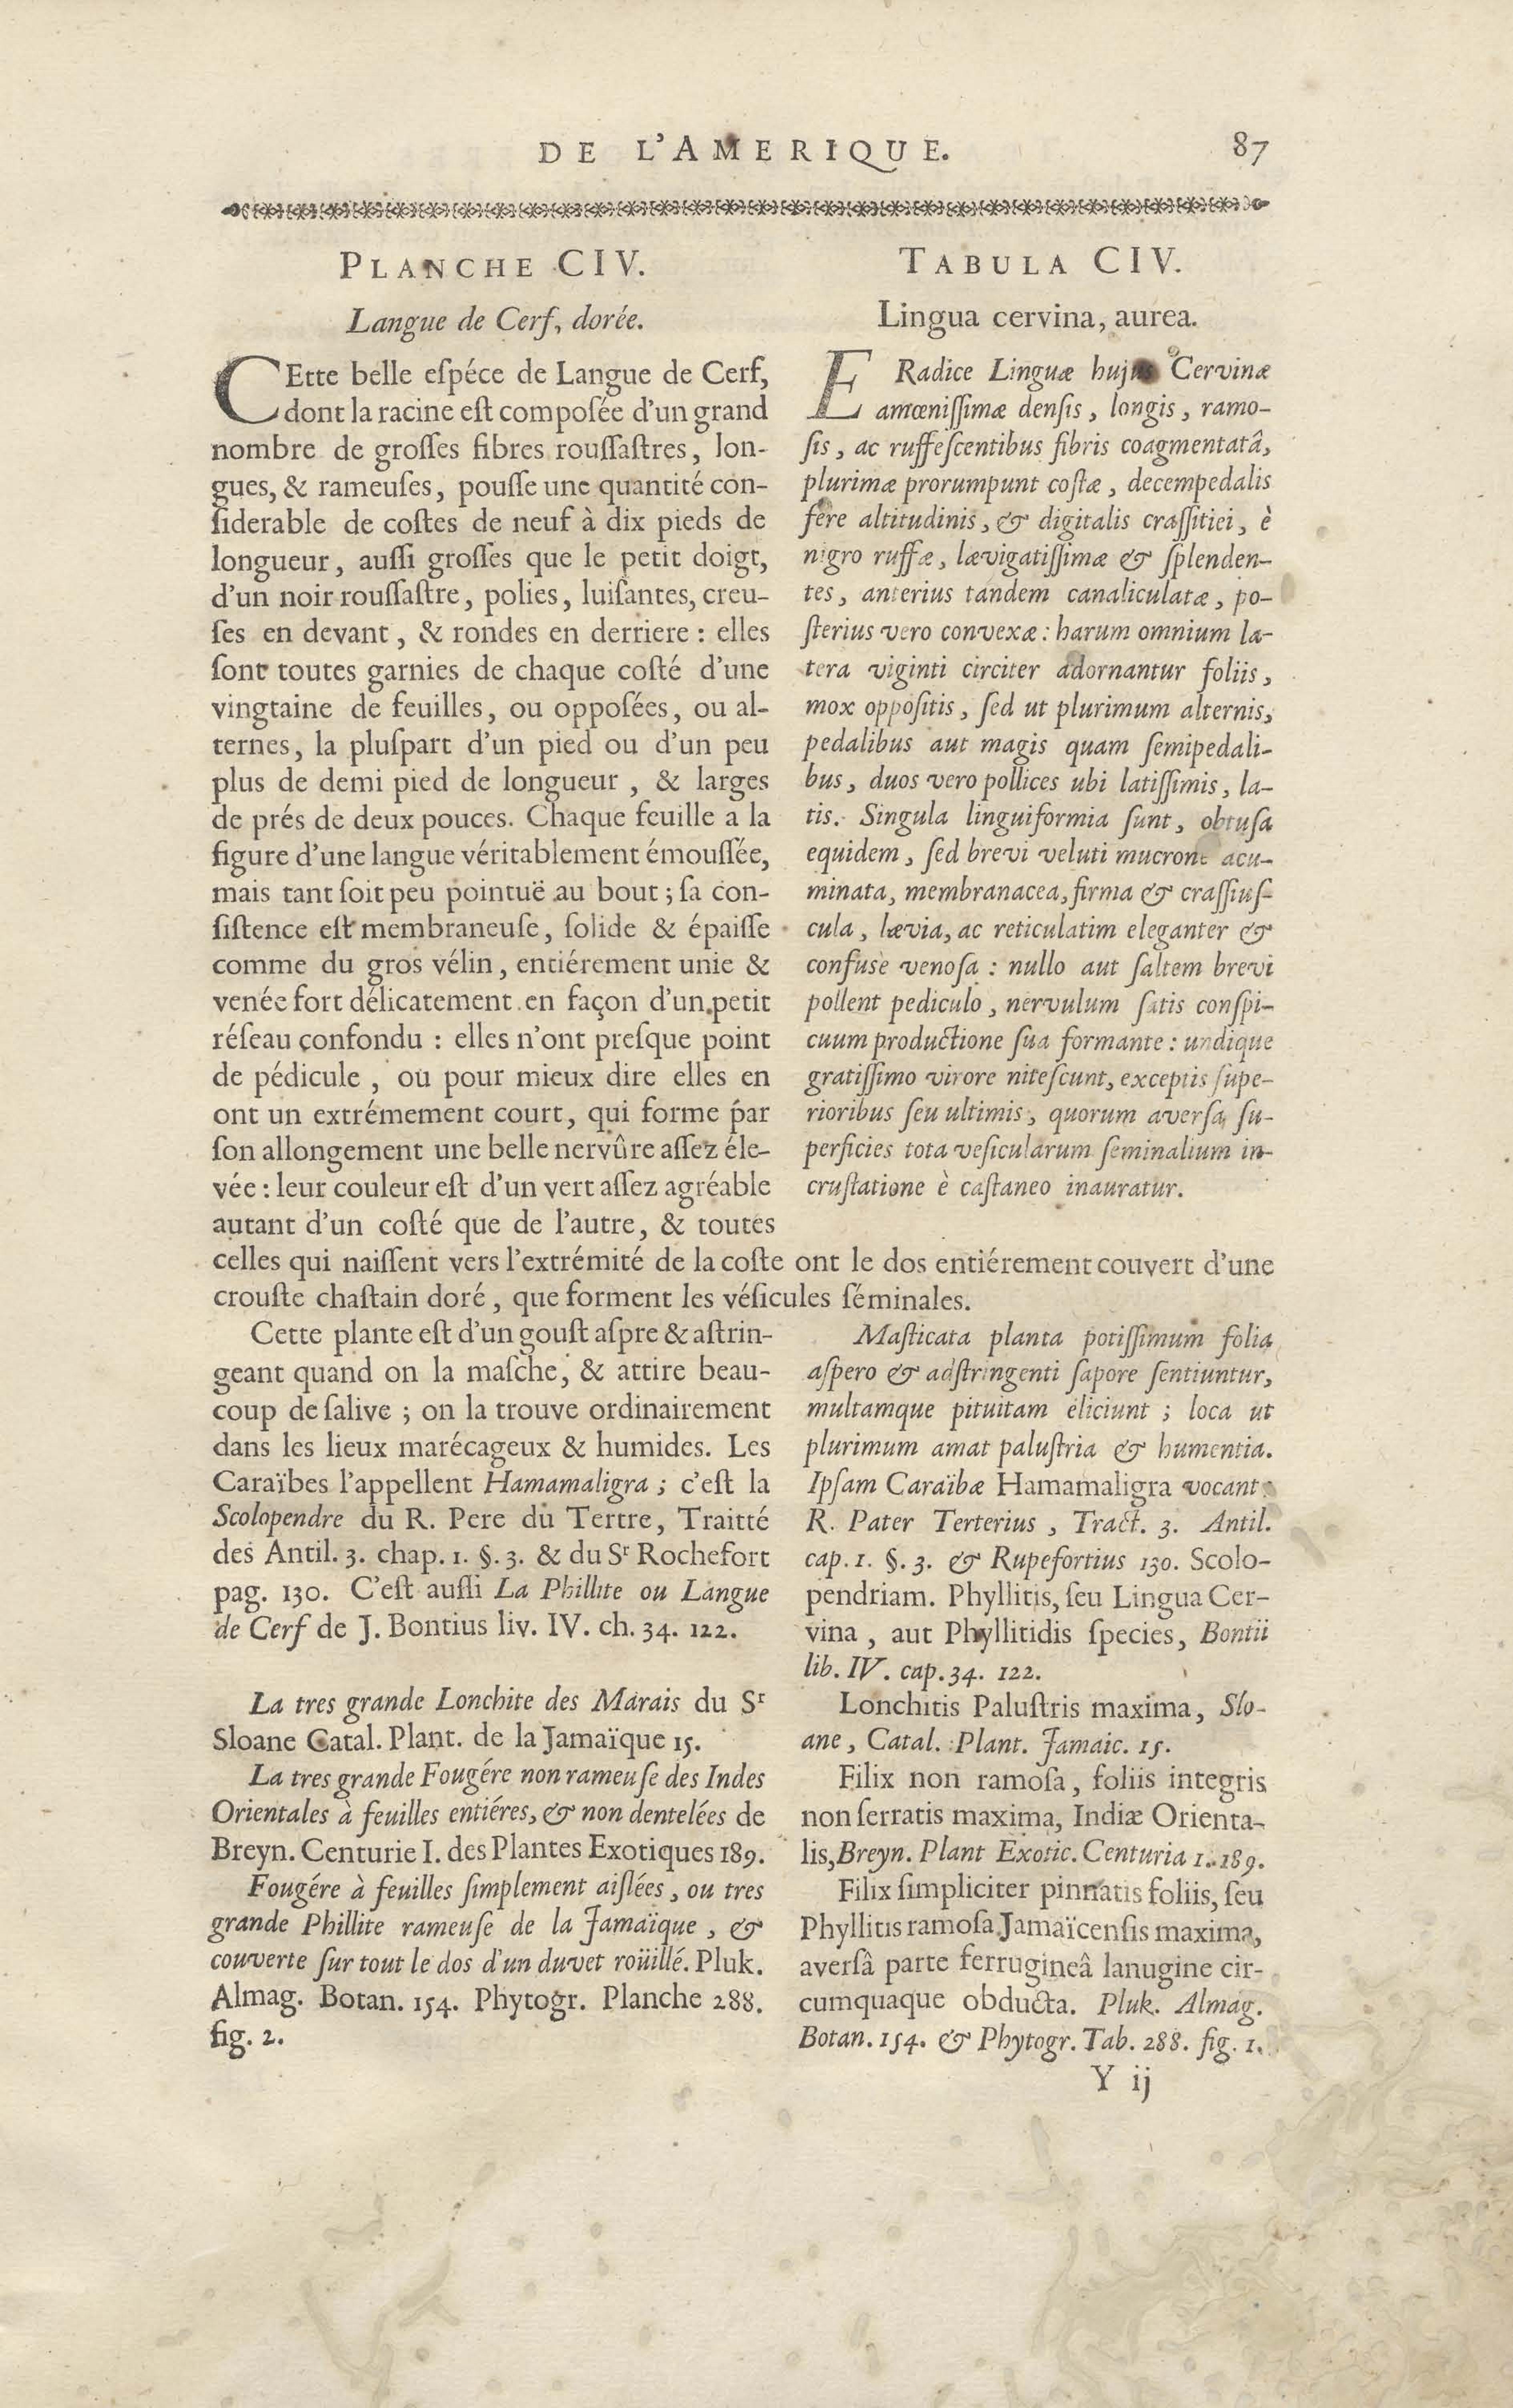 DE L'AMERIQUE. 87
PLANCHE CIV.
Langue de Cerf, dorée.
CEtte belle eſpéce de Langue de Cerf,
dont la racine eſt compoſée d'un grand
nombre de groſſes fibres rouſſaſtres, lon-
gues, & rameuſes, pouſſe une quantité con-
ſiderable de coſtes de neuf à dix pieds de
longueur, auſſi groſſes que le petit doigt,
d'un noir rouſſaſtre, polies, luiſantes, creu-
ſes en devant, & rondes en derriere : elles
ſont toutes garnies de chaque coſté d'une
vingtaine de feuilles, ou oppoſées, ou al-
ternes, la pluſpart d'un pied ou d'un peu
plus de demi pied de longueur, & larges
de prés de deux pouces. Chaque feuille a la
figure d'une langue véritablement émouſſée,
mais tant ſoit peu pointuë au bout ; ſa con-
ſiſtence eſt membraneuſe, ſolide & épaiſſe
comme du gros vélin, entiérement unie &
venée fort délicatement en façon d'un petit
réſeau confondu : elles n'ont preſque point
de pédicule, ou pour mieux dire elles en
ont un extrémement court, qui forme par
ſon allongement une belle nervûre aſſez éle-
vée : leur couleur eſt d'un vert aſſez agréable
autant d'un coſté que de l'autre, & toutes
celles qui naiſſent vers l'extrémité de la coſte ont le dos entiérement couvert d'une
crouſte chaſtain doré, que forment les véſicules ſéminales.
Cette plante eſt d'un gouſt aſpre & aſtrin-
geant quand on la maſche, & attire beau-
coup de ſalive ; on la trouve ordinairement
dans les lieux marécageux & humides. Les
Caraïbes l'appellent Hamamaligra ; c'eſt la
Scolopendre du R. Pere du Tertre, Traitté
des Antil. 3. chap. 1. §. 3. & du Sr Rochefort
pag. 130. C'eſt auſſi La Phillite ou Langue
de Cerf de J. Bontius liv. IV. ch. 34. 122.
La tres grande Lonchite des Marais du Sr
Sloane Catal. Plant. de la Jamaïque 15.
La tres grande Fougére non rameuſe des Indes
Orientales à feuilles entiéres, & non dentelées de
Breyn. Centurie I. des Plantes Exotiques 189.
Fougére à feuilles ſimplement aiſlées, ou tres
grande Phillite rameuſe de la Jamaïque, &
couverte ſur tout le dos d'un duvet roüillé. Pluk.
Almag. Botan. 154. Phytogr. Planche 288.
fig. 2.
TABULA CIV.
Lingua cervina, aurea.
E Radice Linguæ hujus Cervinæ
amœniſſimæ denſis, longis, ramo-
ſis, ac ruffeſcentibus fibris coagmentatâ,
plurimæ prorumpunt coſtæ, decempedalis
fere altitudinis, & digitalis craſſitiei, è
nigro ruffæ, lævigatiſſimæ & ſplenden-
tes, anterius tandem canaliculatæ, po-
ſterius vero convexæ : harum omnium la-
tera viginti circiter adornantur foliis,
mox oppoſitis, ſed ut plurimum alternis,
pedalibus aut magis quam ſemipedali-
bus, duos vero pollices ubi latiſſimis, la-
tis. Singula linguiformia ſunt, obtuſa
equidem, ſed brevi veluti mucrone acu-
minata, membranacea, firma & craſſiuſ-
cula, lævia, ac reticulatim eleganter &
confuse venoſa : nullo aut ſaltem brevi
pollent pediculo, nervulum ſatis conſpi-
cuum productione ſua formante : undique
gratiſſimo virore niteſcunt, exceptis ſupe-
rioribus ſeu ultimis, quorum averſa ſu-
perficies tota veſicularum ſeminalium in-
cruſtatione è caſtaneo inauratur.
Maſticata planta potiſſimum folia
aſpero & adſtringenti ſapore ſentiuntur,
multamque pituitam eliciunt ; loca ut
plurimum amat paluſtria & humentia.
Ipſam Caraïbæ Hamamaligra vocant :
R. Pater Terterius, Tract. 3. Antil.
cap. 1. §. 3. & Rupefortius 130. Scolo-
pendriam. Phyllitis, ſeu Lingua Cer-
vina, aut Phyllitidis ſpecies, Bontii
lib. IV. cap. 34. 122.
Lonchitis Paluſtris maxima, Slo-
ane, Catal. Plant. Jamaic. 15.
Filix non ramoſa, foliis integris
non ſerratis maxima, Indiæ Orienta-
lis, Breyn. Plant Exotic. Centuria 1. 189.
Filix ſimpliciter pinnatis foliis, ſeu
Phyllitis ramoſa Jamaïcenſis maxima,
averſâ parte ferrugineâ lanugine cir-
cumquaque obducta. Pluk. Almag.
Botan. 154. & Phytogr. Tab. 288. fig. 1.
Y ij